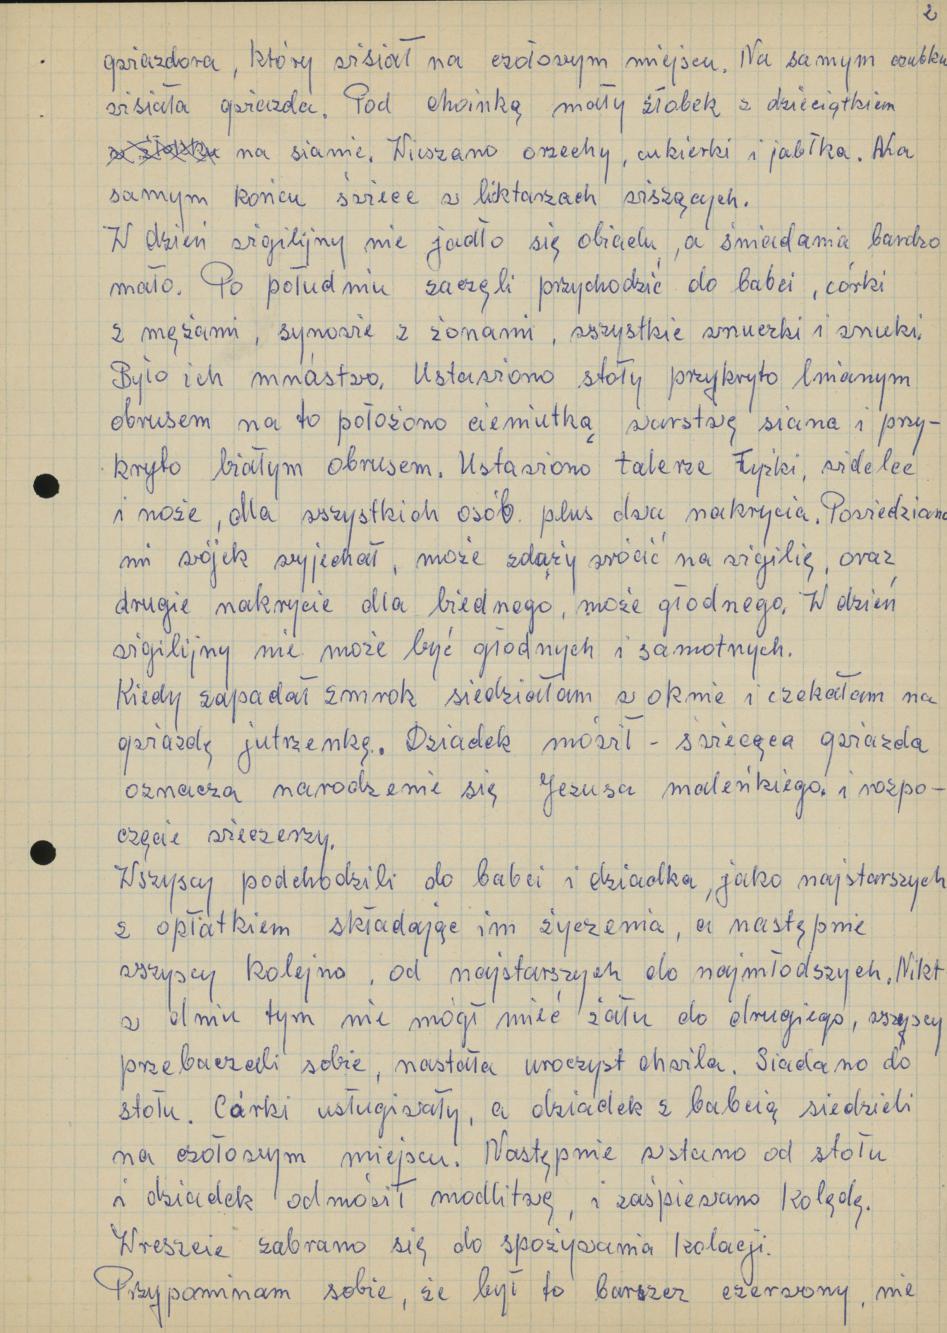 2
gwiazdora, który wisiał na czołowym miejscu. Na samym czubku
wisiała gwiazda. Pod choinką mały żłobek z dzieciątkiem
na sianie. Wieszano orzechy, cukierki i jabłka. Na
samym końcu świece w liktarzach wiszących.
W dzień wigilijny nie jadło się obiadu, a śniadania bardzo
mało. Po południu zaczęli przychodzić do babci, córki
z mężami, synowie z żonami, wszystkie wnuczki i wnuki.
Było ich mnóstwo. Ustawiono stoły przykryto lnianym
obrusem na to położono cieniutką warstwę siana i przy-
kryto białym obrusem. Ustawiono talerze łyżki, widelce
i noże, dla wszystkich osób plus dwa nakrycia. Powiedziano
mi wójek wyjechał, może zdąży wrócić na wigilię, oraz
drugie nakrycie dla biednego, może głodnego. W dzień
wigilijny nie może być głodnych i samotnych.
Kiedy zapadał zmrok siedziałam w oknie i czekałam na
gwiazdę jutrzenkę. Dziadek mówił - świecąca gwiazda
oznacza narodzenie się Jezusa maleńkiego. i rozpo-
częcie wieczerzy.
Wszyscy podchodzili do babci i dziadka, jako najstarszych
z opłatkiem składając im życzenia, a następnie
wszyscy kolejno, od najstarszych do najmłodszych. Nikt
w dniu tym nie mógł mieć żalu do drugiego, wszyscy
przebaczali sobie, nastała uroczyst chwila. Siadano do
stołu. Córki usługiwały, a dziadek z babcią siedzieli
na czołowym miejscu. Następnie wstano od stołu
i dziadek odmówił modlitwę, i zaśpiewano kolędę.
Wreszcie zabrano się do spożywania kolacji.
Przypominam sobie, że był to barszcz czerwony, nie